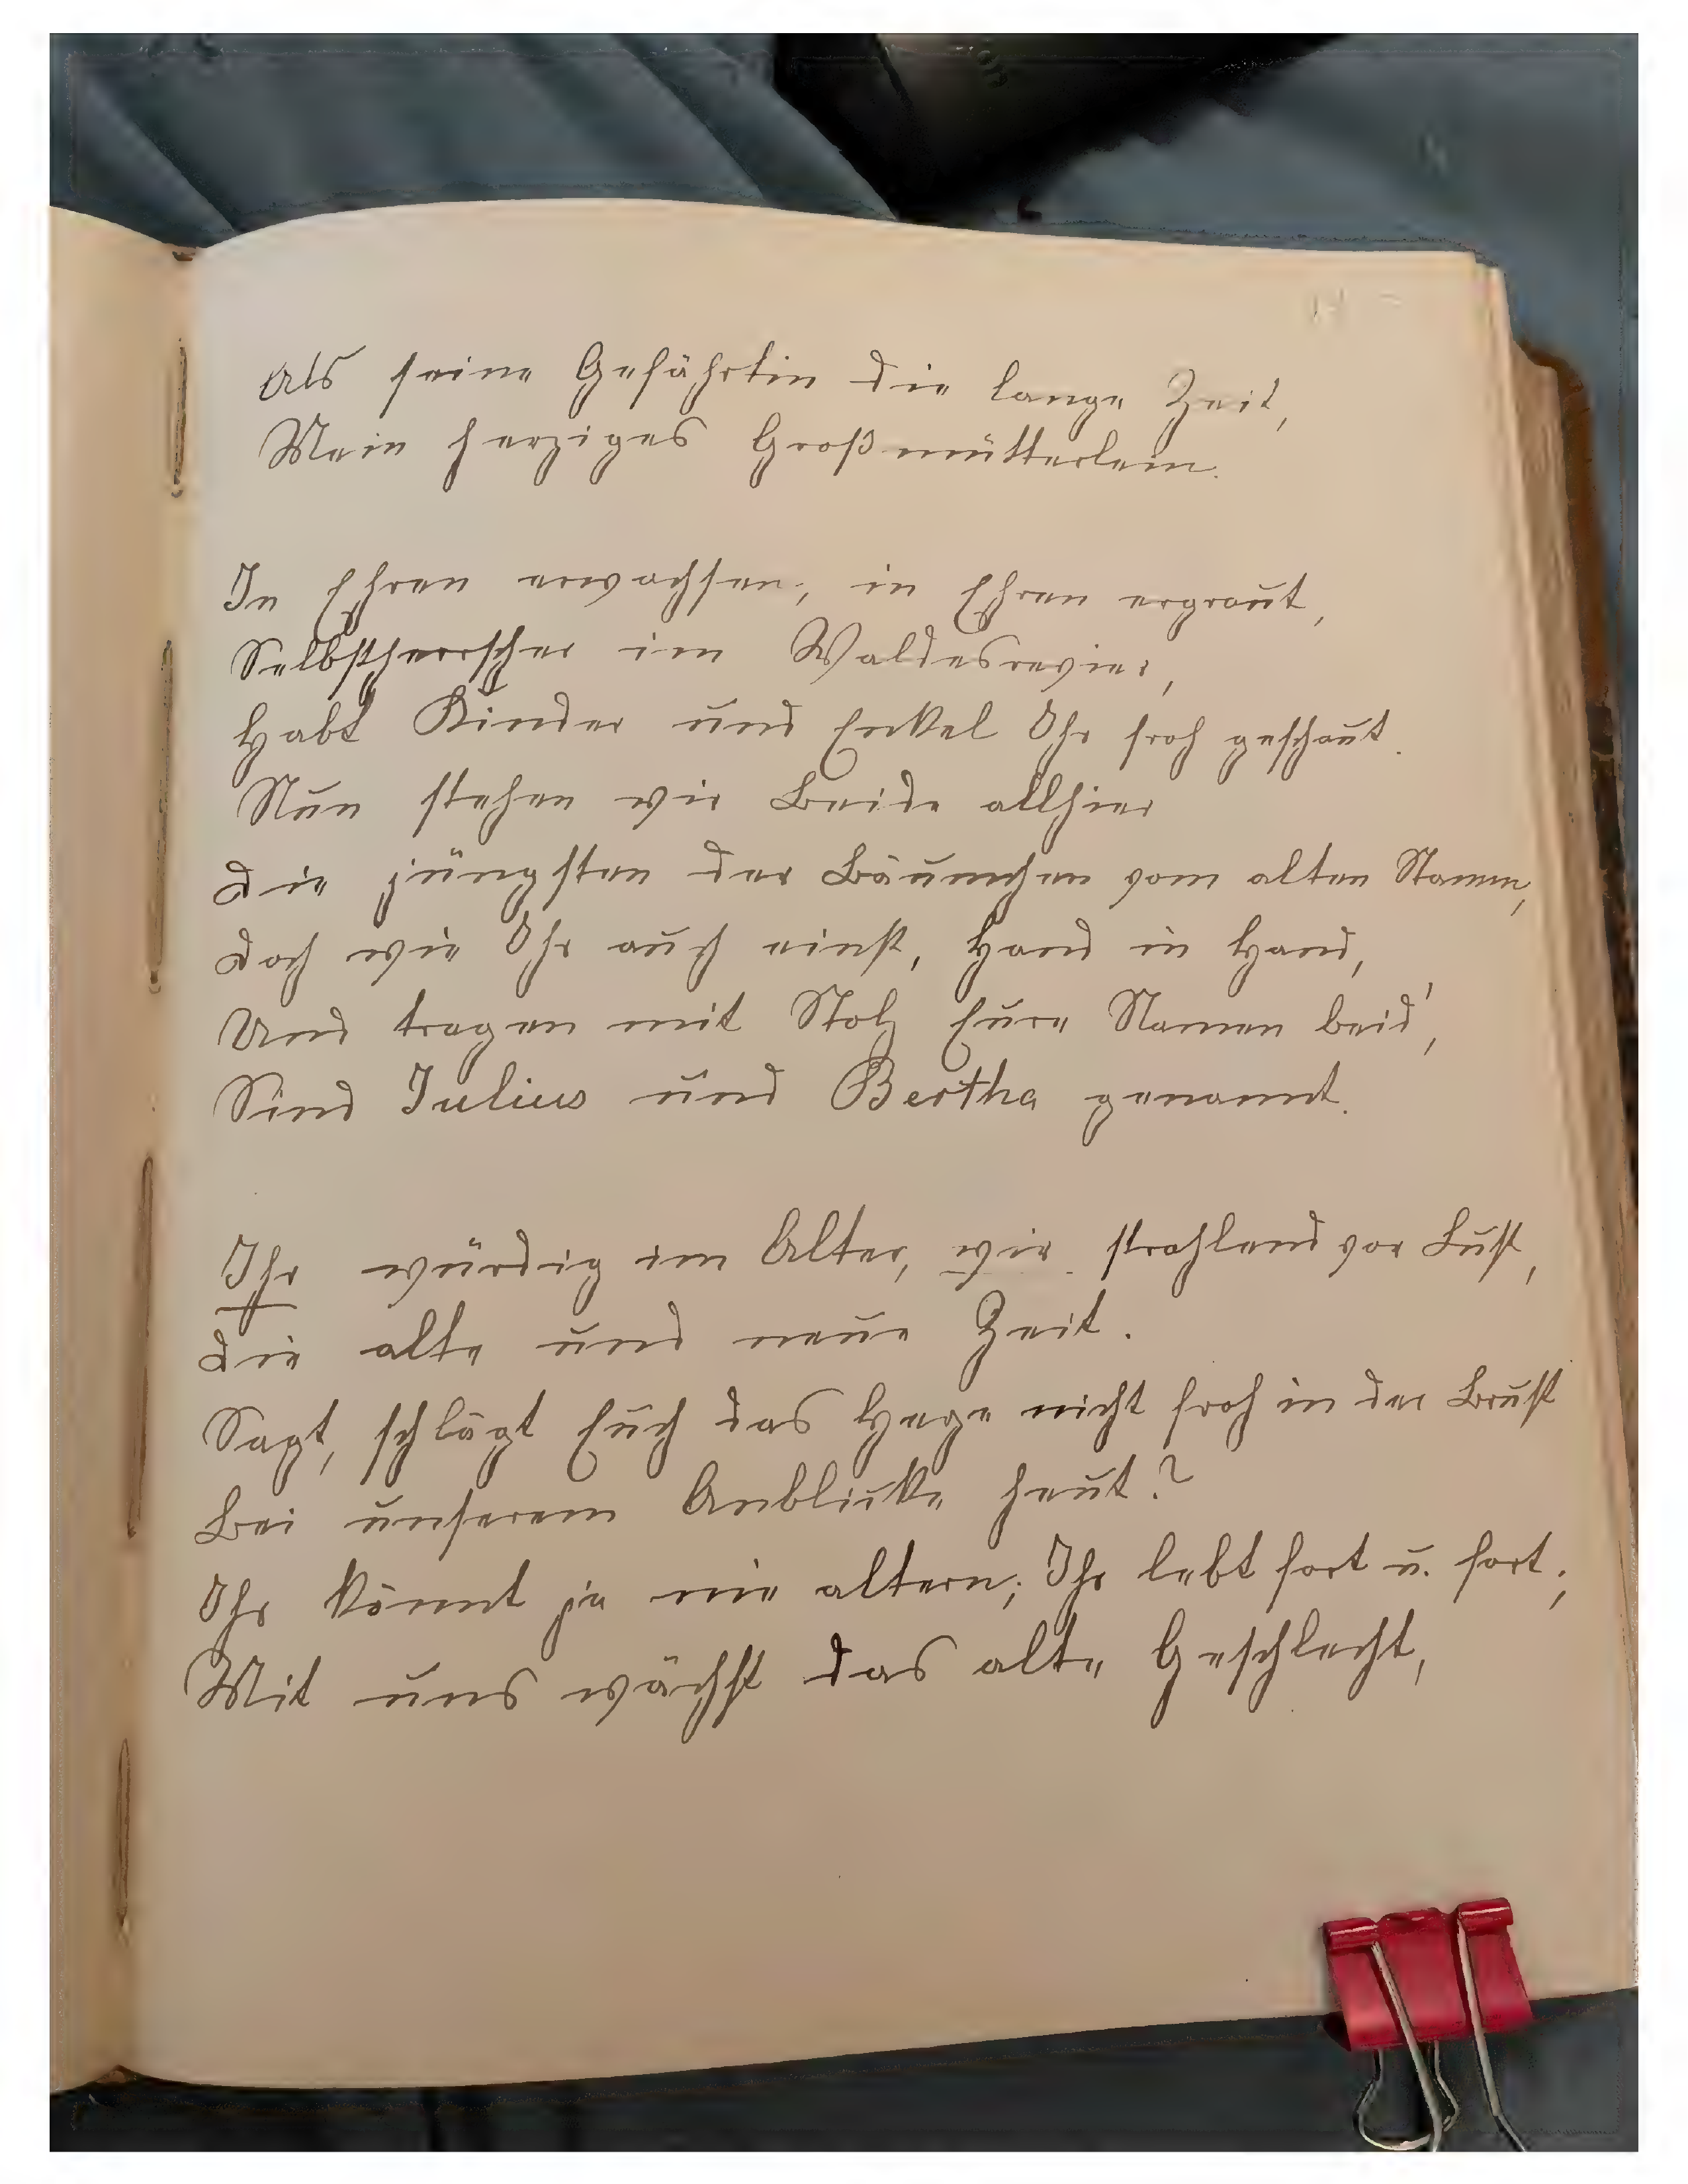 Als seine Gefährtin die lange Zeit,
Mein herziges Großmütterlein.
In Ehren erwachsen, in Ehren ergraut,
Selbstherrscher im Waldesrevier,
Habt Kinder und Enkel Ihr froh geschaut.
Nun stehen wir Beide allhier
Die jüngsten der Bäumchen vom alten Stamm,
Doch wie Ihr auch einst, Hand in Hand,
Und tragen mit Stolz Eure Namen beid',
Sind Julius und Bertha genannt.
Ihr würdig im Alter, wir strahlend vor Lust,
Die alte und neue Zeit.
Sagt, schlägt Euch das Herze nicht froh in der Brust
Bei unserem Anblicke heut?
Ihr könnt ja nie altern; Ihr lebt fort u. fort;
Mit uns wächst das alte Geschlecht,